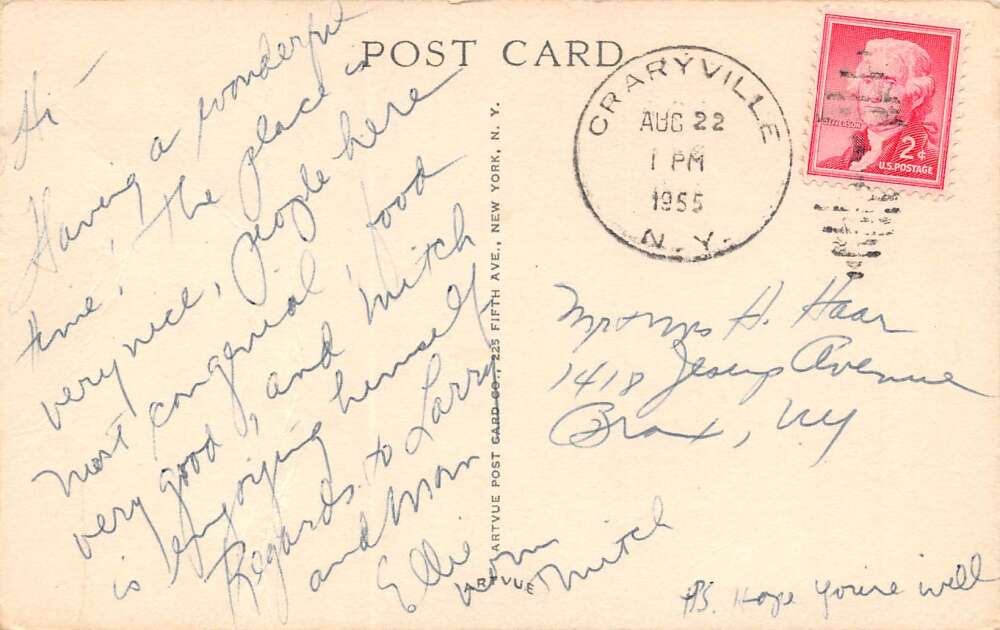 POST CARD
Hi -
Having a wonderful
time, the place is
very nice, people here
most congenial, food
very good, and Mitch
is enjoying himself
Regards to Larry
and Mom
Ellie
Mitch
ARTVUE POST CARD CO., 225 FIFTH AVE., NEW YORK, N. Y.
ARTVUE
CRARYVILLE
AUG 22
1 PM
1955
N. Y.
JEFFERSON
2¢
U.S. POSTAGE
Mr + Mrs H. Haar
1418 Jesup Avenue
Bronx, NY
PS. Hope you're well